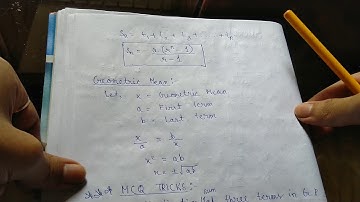 Sn = t1 + t2 + t3 + + tn
Sn = a(r^n - 1)
r - 1
Geometric Mean:
Let, x = Geometric Mean
a = First term
b = Last term
x/a = b/x
x² = ab
x = ±√ab
MCQ TRICKS:
three terms in G.P